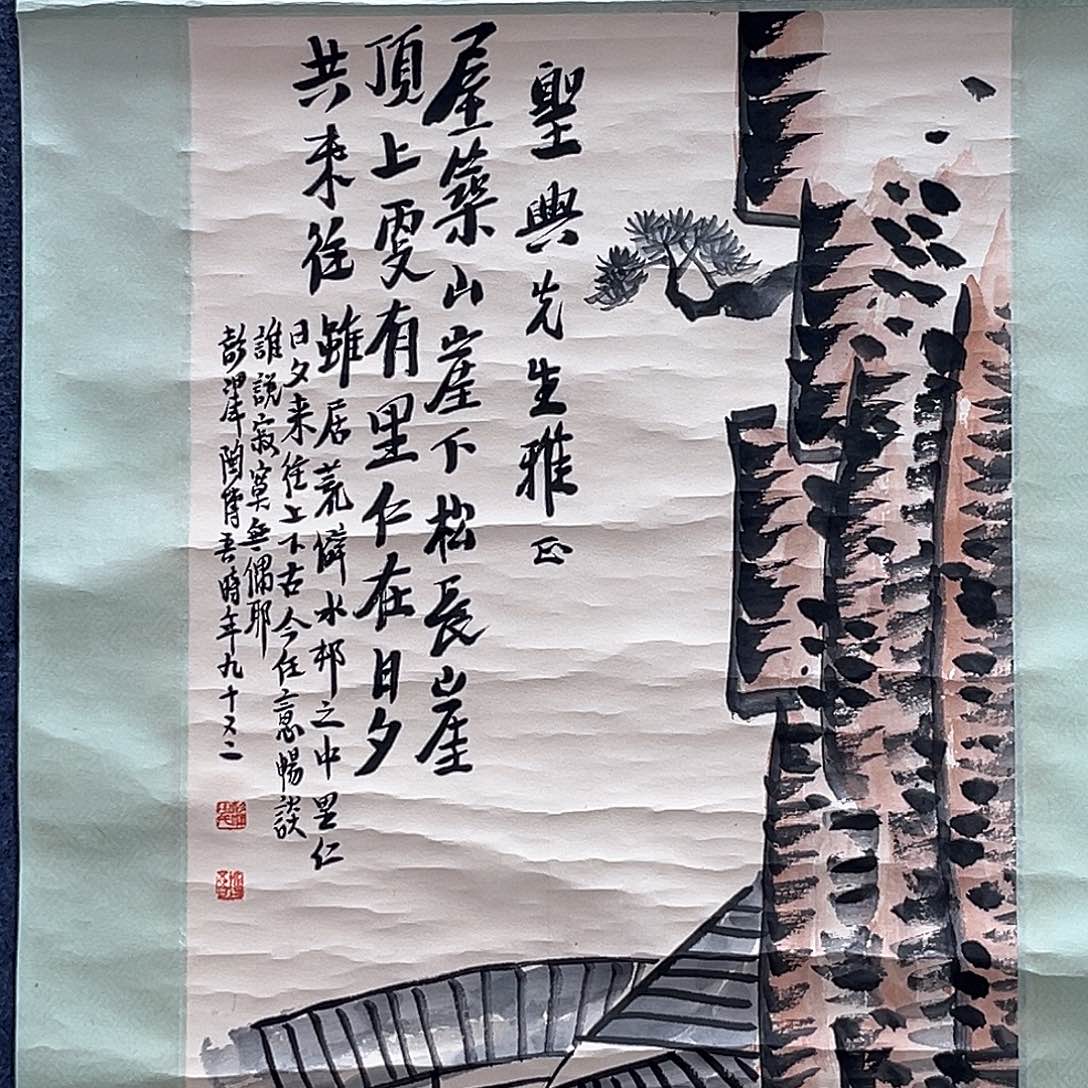 聖與先生雅正
屋築山崖下松長山崖
頂上更有里仁在日夕
共来往 雖居荒僻水邨之中里仁
日夕来往上下古今任意暢談
誰說寂寞無偶耶
彭澤陶博吾時年九十又二